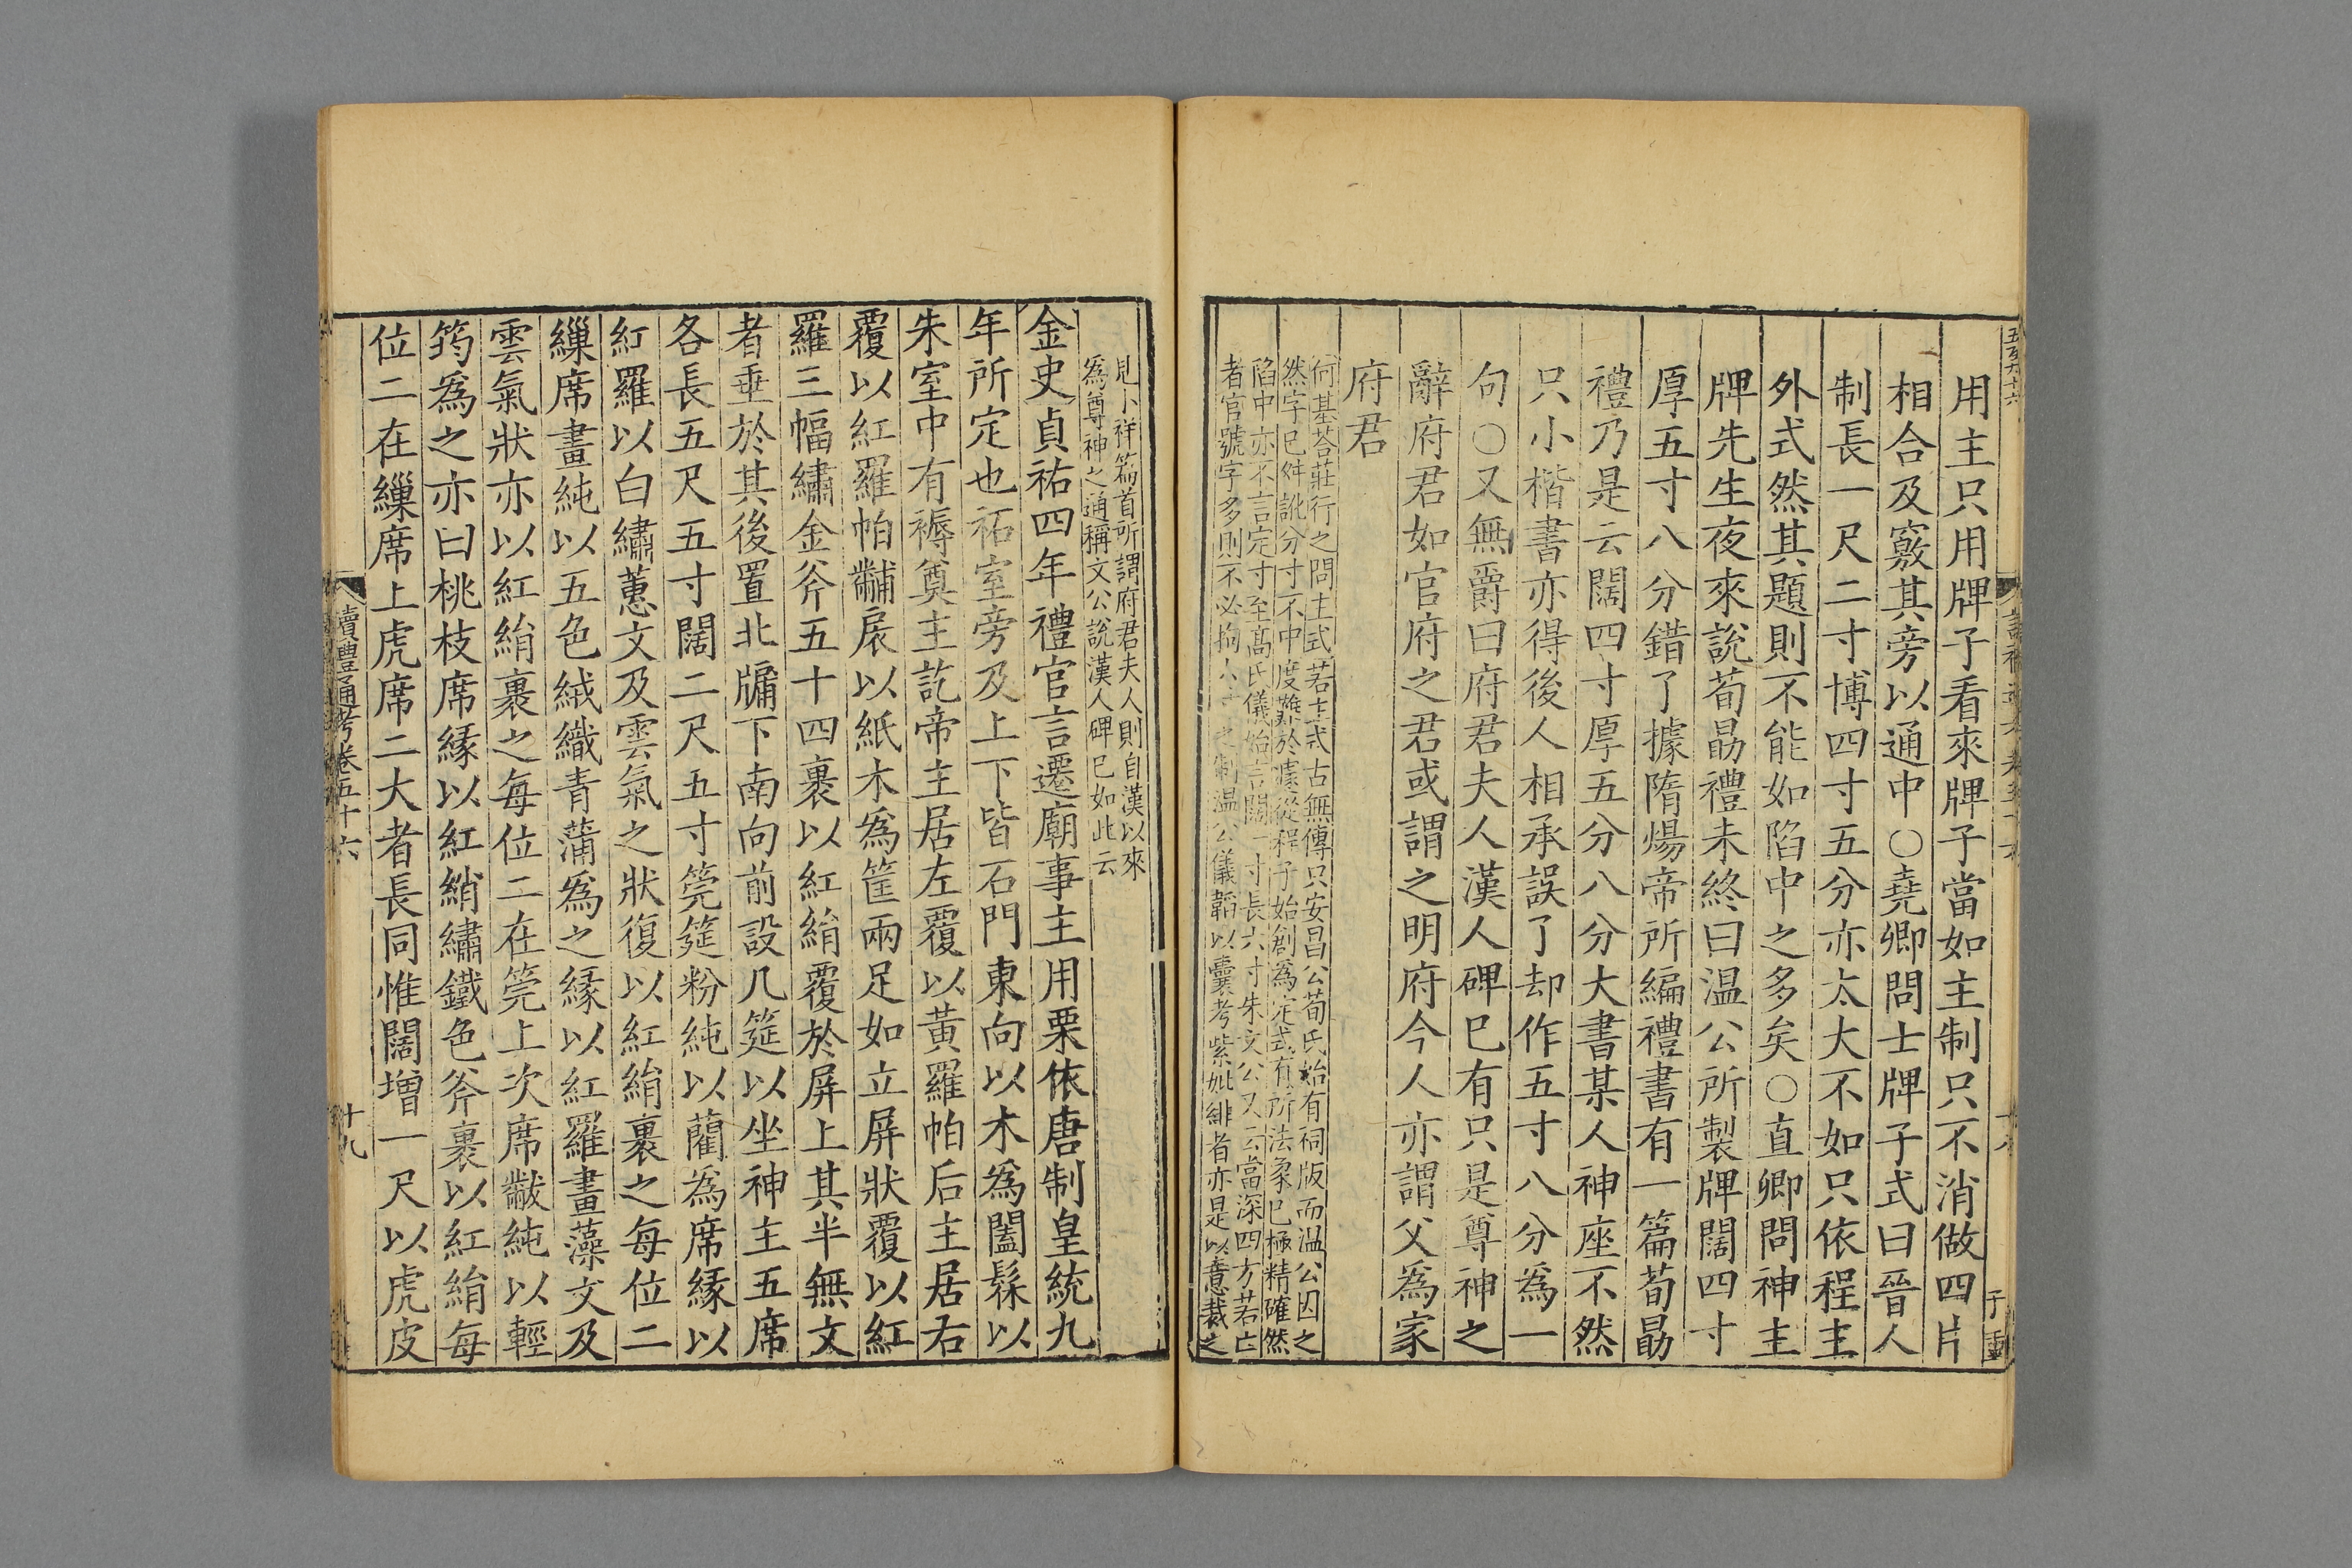 用主只用牌子看來牌子當如主制只不消做四片
相合及竅其旁以通中○堯卿問士牌子式曰晉人
制長一尺二寸博四寸五分亦太大不如只依程主
外式然其題則不能如陷中之多矣○直卿問神主
牌先生夜來說荀勗禮未終曰溫公所製牌闊四寸
厚五寸八分錯了據隋煬帝所編禮書有一篇荀勗
禮乃是云闊四寸厚五分八分大書某人神座不然
只小楷書亦得後人相承誤了却作五寸八分爲一
句○又無爵曰府君夫人漢人碑已有只是尊神之
辭府君如官府之君或謂之明府今人亦謂父爲家
府君
何基荅莊行之問主式若主式古無傳只安昌公荀氏始有祠版而溫公因之
然字已舛訛分寸不中度難於據從程子始創爲定式有所法象已極精確然
陷中亦不言定寸至高氏儀始言闊一寸長六寸朱文公又云當深四方若亡
者官號字多則不必拘六寸之制溫公儀韜以囊考紫妣緋者亦是以意裁之
尅卜祥篇首所謂府君夫人則自漢以來
爲尊神之通稱文公說漢人碑已如此云
金史貞祐四年禮官言遷廟事主用栗依唐制皇統九
年所定也祏室旁及上下皆石門東向以木爲闔髹以
朱室中有褥奠主訖帝主居左覆以黃羅帕后主居右
覆以紅羅帕黼扆以紙木爲筐兩足如立屏狀覆以紅
羅三幅繡金斧五十四裹以紅絹覆於屏上其半無文
者垂於其後置北牖下南向前設几筵以坐神主五席
各長五尺五寸闊二尺五寸莞筵粉純以藺爲席緣以
紅羅以白繡蕙文及雲氣之狀復以紅絹裹之每位二
繅席畫純以五色絨織青蒲爲之緣以紅羅畫藻文及
雲氣狀亦以紅絹裹之每位二在莞上次席黻純以輕
筠爲之亦曰桃枝席緣以紅綃繡鐵色斧裹以紅絹每
位二在繅席上虎席二大者長同惟闊增一尺以虎皮
讀禮通考卷五十六
十九